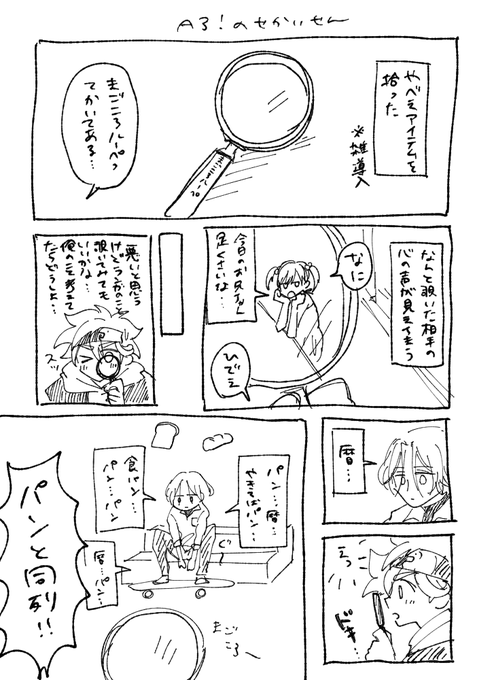 A3!のせかいせん
やべェアイテムを
拾った
※雑導入
まごころルーペっ
てかいてある…
まごころルーペ
なんと覗いた相手の
心の声が見えてしまう
なに
今日のお兄ちゃん
足くさいな…
ひでェ
悪いと思う
けどランガのこと
覗いてみても
いいかな…
俺のこと考えて
たらどうしよ…
スッ
暦…
えっ
ドキ…
パン…暦…
やきそばパン…
食パン…
パン…パン
暦…パン…
ぐ〜
まごころ〜
パンと同列!!